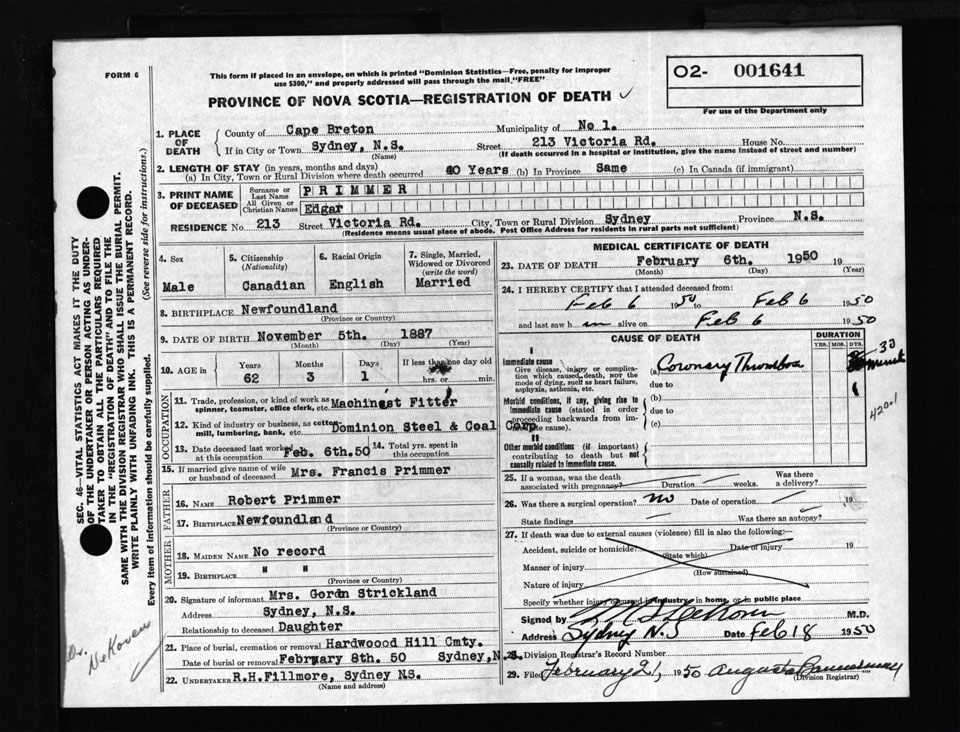 FORM 6
This form if placed in an envelope, on which is printed "Dominion Statistics—Free, penalty for improper
use $300," and properly addressed will pass through the mail "FREE"
O2- 001641
For use of the Department only
PROVINCE OF NOVA SCOTIA—REGISTRATION OF DEATH
1. PLACE OF DEATH County of Cape Breton Municipality of No 1.
If in City or Town Sydney, N.S. Street 213 Victoria Rd. House No.
(Name) (If death occurred in a hospital or institution, give the name instead of street and number)
2. LENGTH OF STAY (in years, months and days)
(a) In City, Town or Rural Division where death occurred 40 Years (b) In Province Same (c) In Canada (if immigrant)
3. PRINT NAME OF DECEASED Surname or Last Name PRIMMER
All Given or Christian Names Edgar
RESIDENCE No. 213 Street Victoria Rd. City, Town or Rural Division Sydney Province N.S.
(Residence means usual place of abode. Post Office Address for residents in rural parts not sufficient)
4. Sex Male
5. Citizenship (Nationality) Canadian
6. Racial Origin English
7. Single, Married, Widowed or Divorced (write the word) Married
8. BIRTHPLACE Newfoundland
(Province or Country)
9. DATE OF BIRTH November 5th. 1887
(Month) (Day) (Year)
10. AGE in Years Months Days If less than one day old
62 3 1 hrs. or min.
OCCUPATION
11. Trade, profession, or kind of work as spinner, teamster, office clerk, etc. Machinest Fitter
12. Kind of industry or business, as cotton mill, lumbering, bank, etc. Dominion Steel & Coal Corp
13. Date deceased last worked at this occupation Feb. 6th.50
14. Total yrs. spent in this occupation
15. If married give name of wife or husband of deceased Mrs. Francis Primmer
FATHER
16. Name Robert Primmer
17. Birthplace Newfoundland
(Province or Country)
MOTHER
18. Maiden Name No record
19. Birthplace " "
(Province or Country)
20. Signature of informant Mrs. Gordon Strickland
Address Sydney, N.S.
Relationship to deceased Daughter
21. Place of burial, cremation or removal Hardwoood Hill Cmty.
Date of burial or removal February 8th. 50 Sydney, N.S.
22. UNDERTAKER R.H.Fillmore, Sydney N.S.
(Name and address)
MEDICAL CERTIFICATE OF DEATH
23. DATE OF DEATH February 6th. 1950 19
(Month) (Day) (Year)
24. I HEREBY CERTIFY that I attended deceased from:
Feb 6 1950 to Feb 6 1950
and last saw h im alive on Feb 6 1950
CAUSE OF DEATH
DURATION
YRS. MOS. DYS.
I
Immediate cause
Give disease, injury or complication which caused death, not the mode of dying, such as heart failure, asphyxia, asthenia, etc.
(a) Coronary Thrombosis
30
due to
Morbid conditions, if any, giving rise to immediate cause (stated in order proceeding backwards from immediate cause)
(b)
due to
(c)
420.1
II
Other morbid conditions (if important) contributing to death but not causally related to immediate cause.
25. If a woman, was the death associated with pregnancy? Duration weeks. Was there a delivery?
26. Was there a surgical operation? no Date of operation 19
State findings Was there an autopsy?
27. If death was due to external causes (violence) fill in also the following:
Accident, suicide or homicide? Date of injury 19
(State which)
Manner of injury
(How sustained)
Nature of injury
Specify whether injury occurred in industry, in home, or in public place
Signed by M.D.
Address Sydney N.S Date Feb 18 1950
28. Division Registrar's Record Number
29. Filed February 21, 1950 Augusta
(Division Registrar)
SEC. 46—VITAL STATISTICS ACT MAKES IT THE DUTY
OF THE UNDERTAKER OR PERSON ACTING AS UNDER-
TAKER TO OBTAIN ALL THE PARTICULARS REQUIRED
IN THE "REGISTRATION OF DEATH" AND TO FILE THE
SAME WITH THE DIVISION REGISTRAR WHO SHALL ISSUE THE BURIAL PERMIT.
WRITE PLAINLY WITH UNFADING INK. THIS IS A PERMANENT RECORD.
Every item of information should be carefully supplied. (See reverse side for instructions.)
Dr. DeKoven